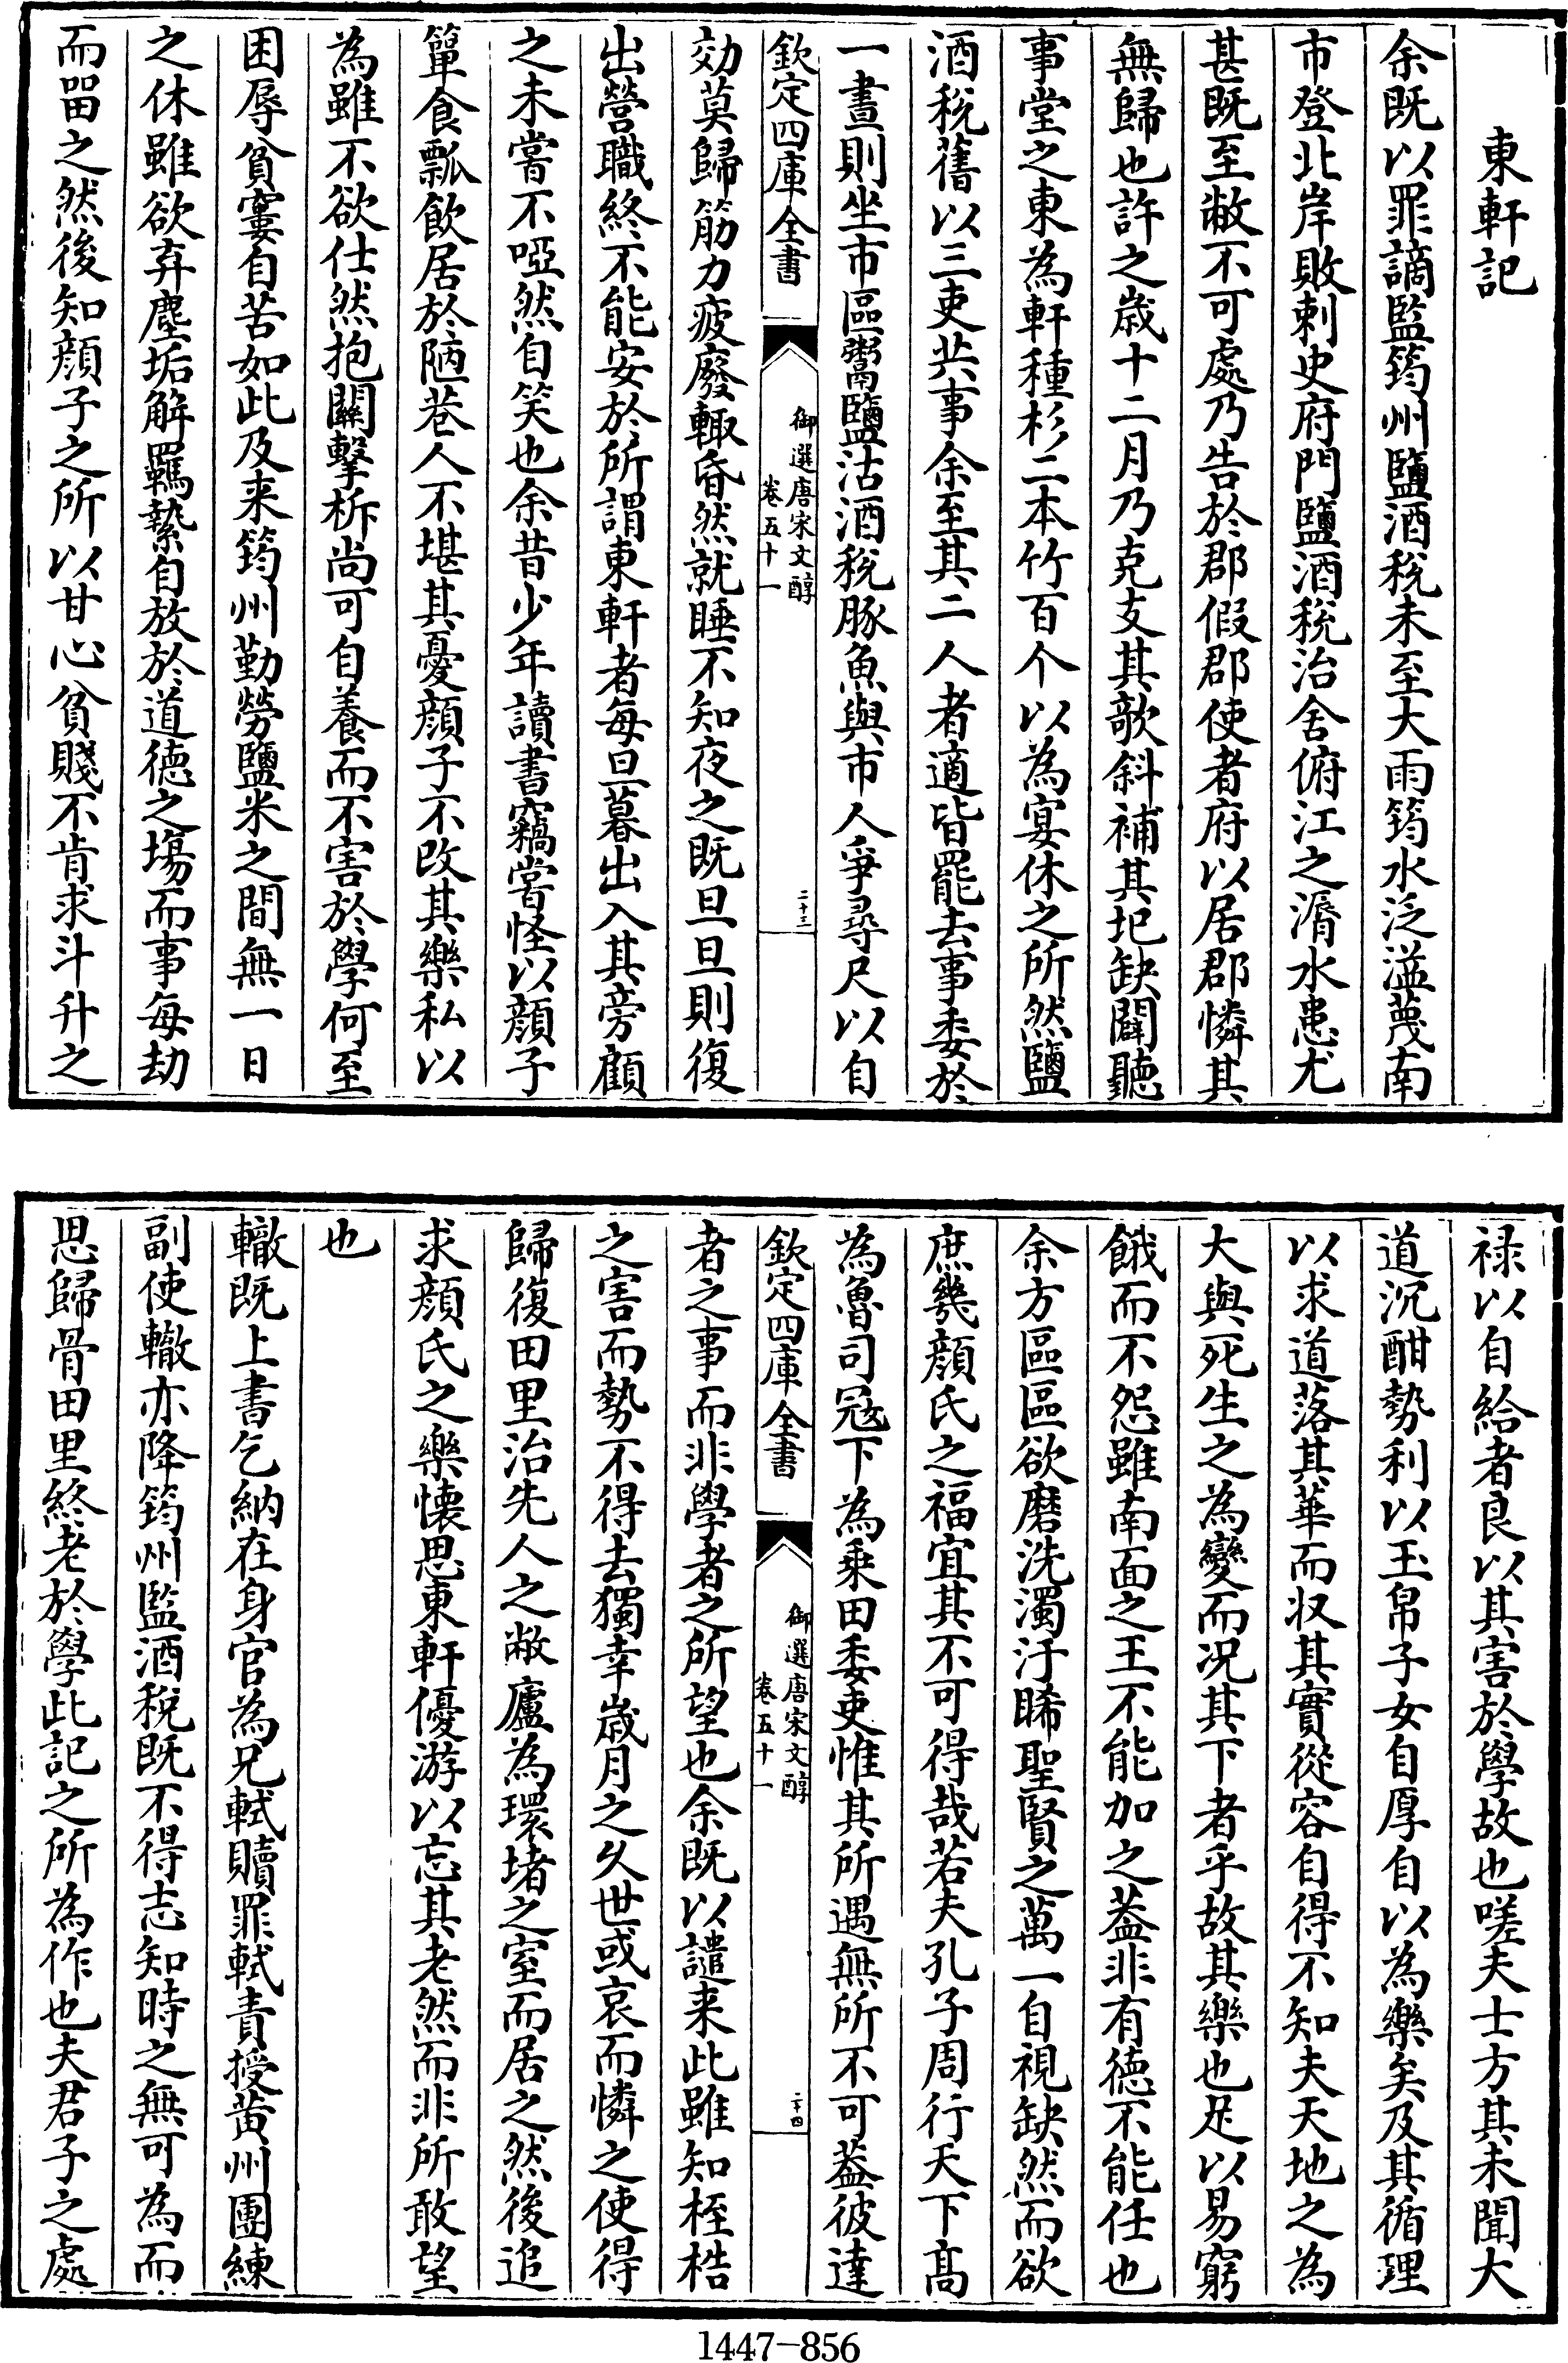 東軒記
余既以罪謫監筠州鹽酒稅未至大雨筠水泛溢蔑南
市登北岸敗刺史府門鹽酒稅治舍俯江之漘水患尤
甚既至敝不可處乃告於郡假郡使者府以居郡憐其
無歸也許之歲十二月乃克支其欹斜補其圮缺闢聽
事堂之東為軒種杉二本竹百个以為宴休之所然鹽
酒稅舊以三吏共事余至其二人者適皆罷去事委於
一晝則坐市區鬻鹽沽酒稅豚魚與市人爭尋尺以自
欽定四庫全書
御選唐宋文醇
卷五十一
二十三
効莫歸筋力疲廢輙昏然就睡不知夜之既旦旦則復
出營職終不能安於所謂東軒者每旦暮出入其旁顧
之未嘗不啞然自笑也余昔少年讀書竊嘗怪以顏子
簞食瓢飲居於陋巷人不堪其憂顏子不改其樂私以
為雖不欲仕然抱關擊柝尚可自養而不害於學何至
困辱貧窶自苦如此及来筠州勤勞鹽米之間無一日
之休雖欲弃塵垢解羈縶自放於道德之塲而事每劫
而畱之然後知顏子之所以甘心貧賤不肯求斗升之
禄以自給者良以其害於學故也嗟夫士方其未聞大
道沉酣勢利以玉帛子女自厚自以為樂矣及其循理
以求道落其華而収其實從容自得不知夫天地之為
大與死生之為變而况其下者乎故其樂也足以易窮
餓而不怨雖南面之王不能加之葢非有德不能任也
余方區區欲磨洗濁汙晞聖賢之萬一自視缺然而欲
庶幾顏氏之福宜其不可得哉若夫孔子周行天下髙
為魯司冦下為乘田委吏惟其所遇無所不可葢彼達
欽定四庫全書
御選唐宋文醇
卷五十一
二十四
者之事而非學者之所望也余既以譴来此雖知桎梏
之害而勢不得去獨幸歲月之久世或哀而憐之使得
歸復田里治先人之敝廬為環堵之室而居之然後追
求顏氏之樂懐思東軒優游以忘其老然而非所敢望
也
轍既上書乞納在身官為兄軾贖罪軾責授黄州團練
副使轍亦降筠州監酒稅既不得志知時之無可為而
思歸骨田里終老於學此記之所為作也夫君子之處
1447-856